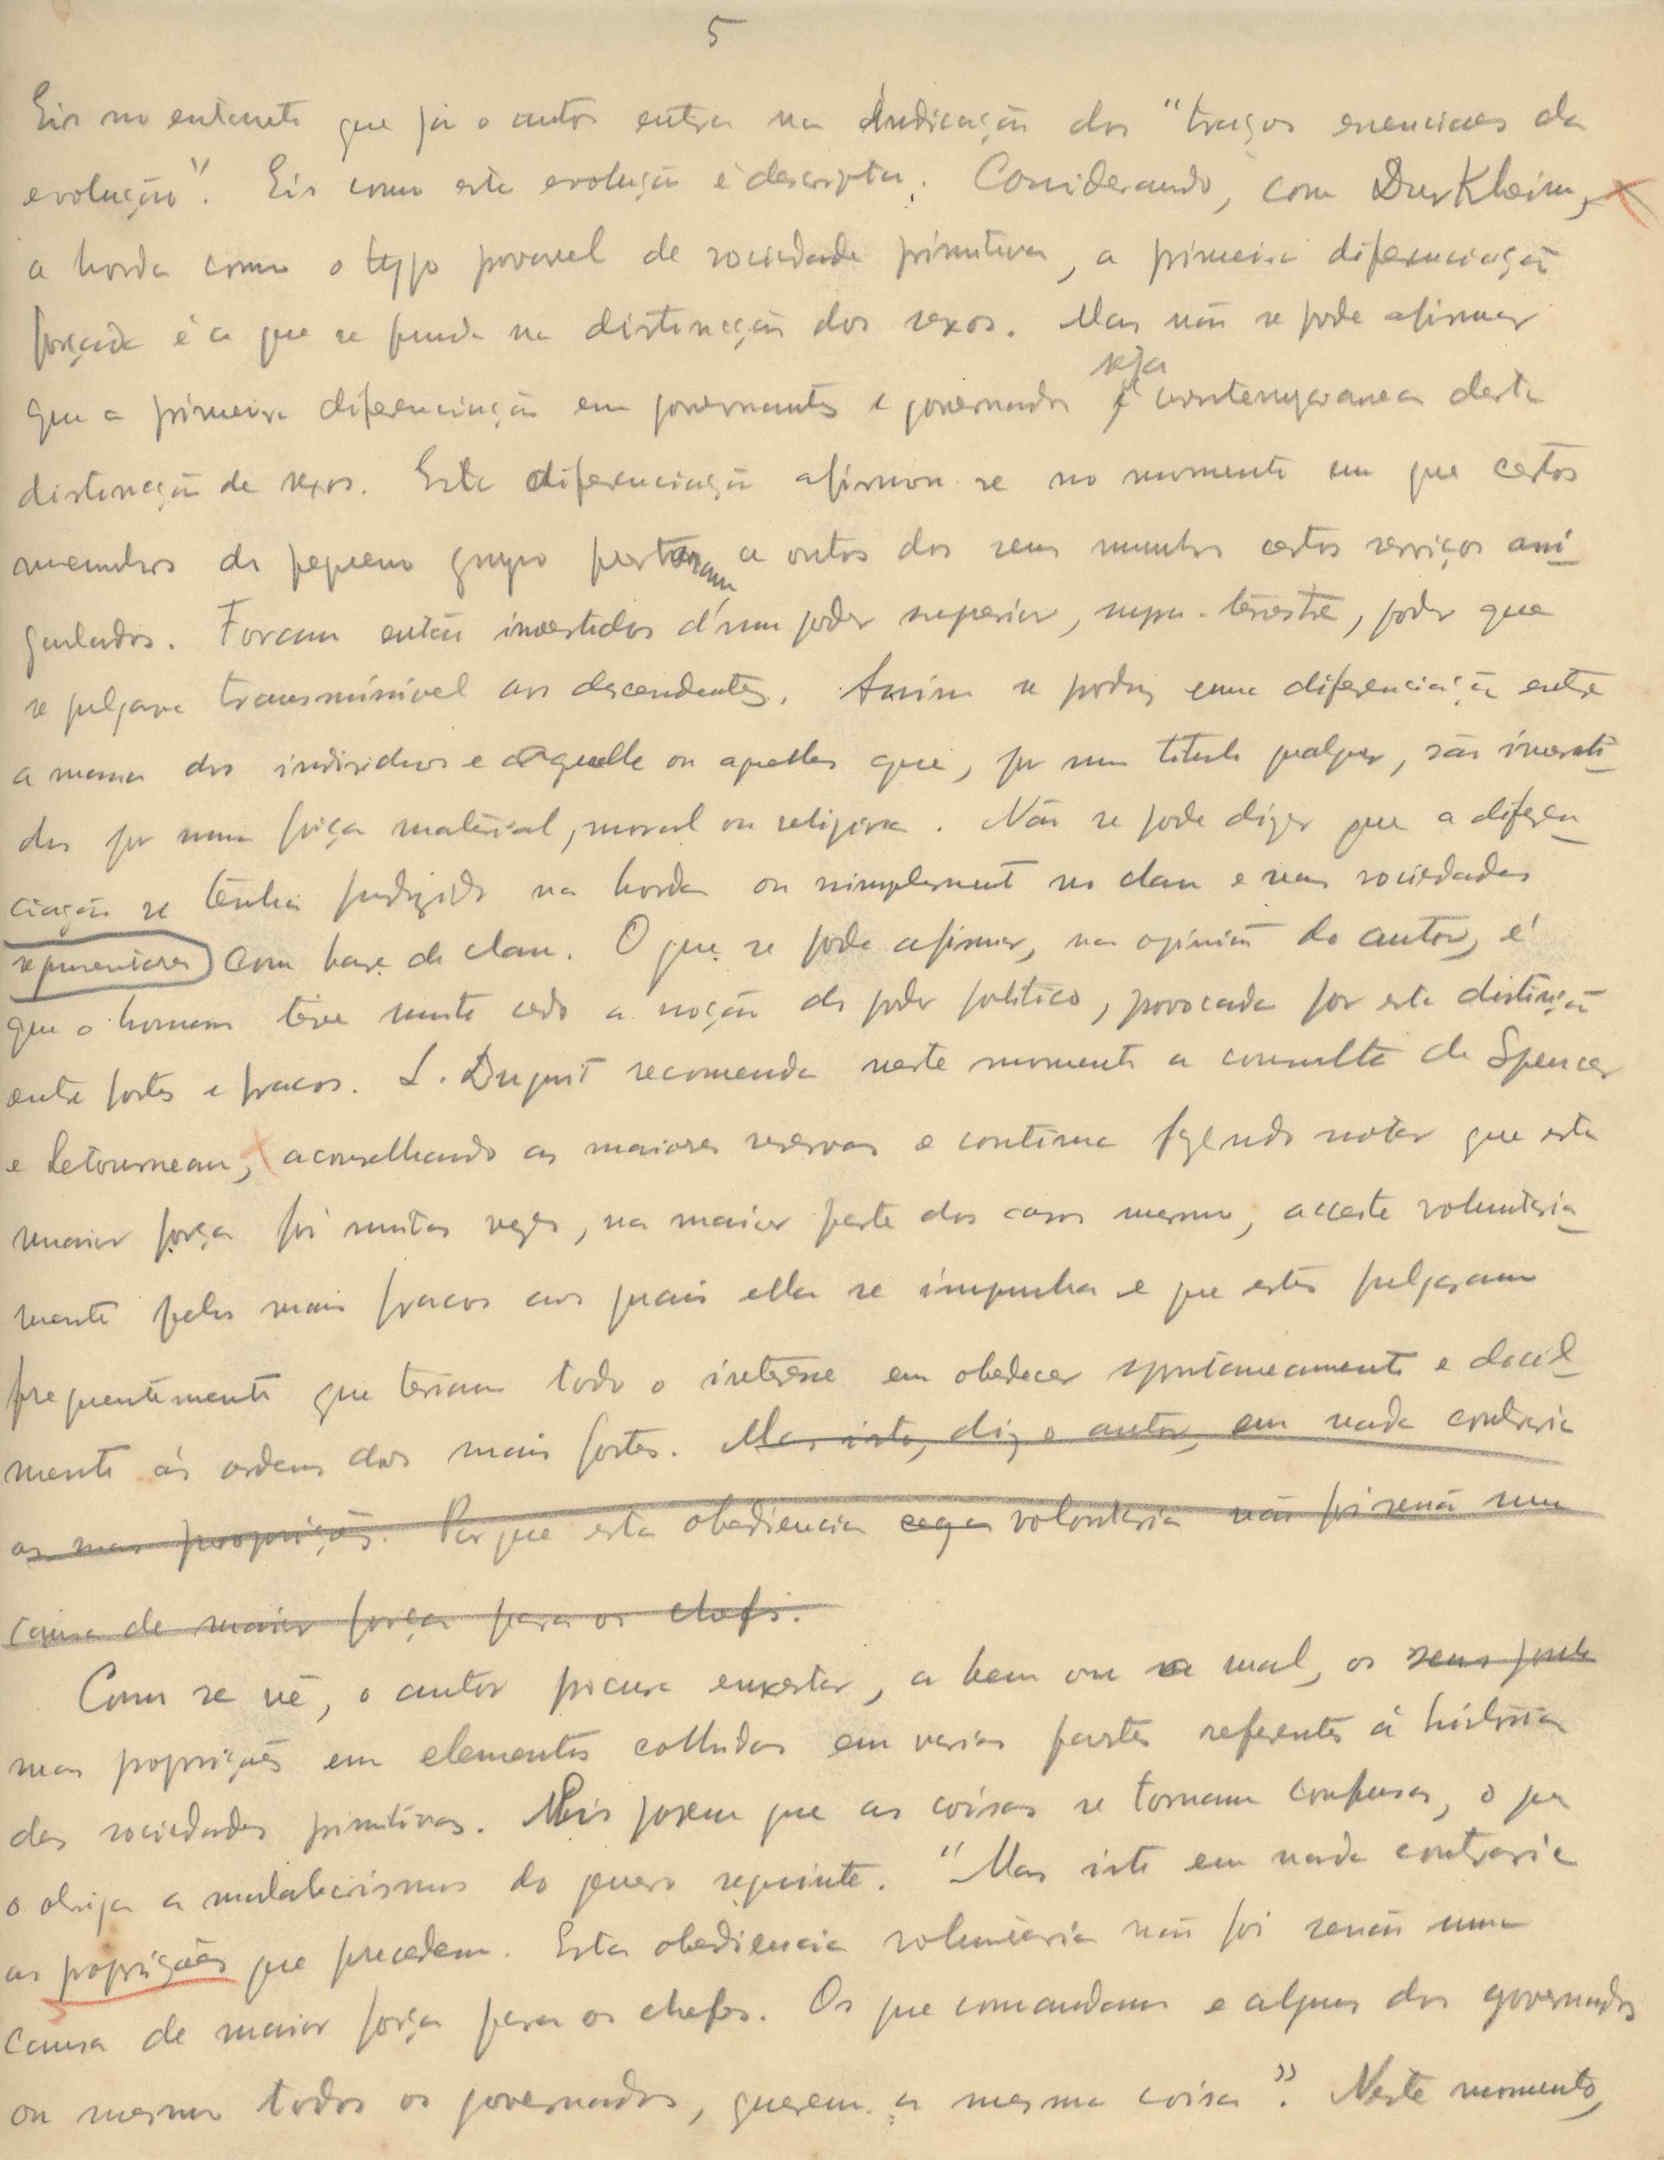 5
Eis no entanto que já o autor entra na indicação dos "traços essenciaes da
evolução". Eis como esta evolução é descripta: Considerando, com Durkheim,
a horda como o typo provavel de sociedade primitiva, a primeira diferenciação
forçada é a que se funda na distincção dos sexos. Mas não se pode afirmar
seja
que a primeira diferenciação em governantes e governados é contemporanea desta
distincção de sexos. Esta diferenciação afirmou-se no momento em que certos
membros do pequeno grupo prestaram a outos dos seus membros certos serviços assi
gnalados. Foram então investidos d'um poder superior, supra-terrestre, poder que
se julgava transmissivel aos descendentes. Assim se produz uma diferenciação entre
a massa dos individuos e aquelle ou aquelles que, por um titulo qualquer, são investi
dos por uma força material, moral ou religiosa. Não se pode dizer que a diferen
ciação se tenha produzido na horda ou simplesmente no clan e nas sociedades
com base de clan. O que se pode afirmar, na opinião do autor, é
que o homem teve muito cedo a noção do poder politico, provocada por esta distinção
entre fortes e fracos. L. Duguit recomenda neste momento a consulta de Spencer
e Letourneau, aconselhando as maiores reservas e continua fazendo notar que esta
maior força foi muitas vezes, na maior parte dos casos mesmo, acceite voluntaria
mente pelos mais fracos aos quais ella se impunha e que estes julgaram
frequentemente que teriam todo o interesse em obedecer espontaneamente e docil
mente ás ordens dos mais fortes. Mas isto, diz o autor, em nada contraria
as suas proposições. Porque esta obediencia cega voluntaria não foi senão uma
causa de maior força para os chefes.
Como se vê, o autor procura enxertar, a bem ou a mal, os seus
suas proposições em elementos colhidos em varias partes referentes á historia
das sociedades primitivas. Mais porem que as coisas se tornam confusas, o que
o obriga a malabarismos do genero seguinte. "Mas isto em nada contraria
as proposições que precedem. Esta obediencia voluntaria não foi senão uma
causa de maior força para os chefes. Os que comandam e alguns dos governados
ou mesmo todos os governados, querem a mesma coisa". Neste momento,